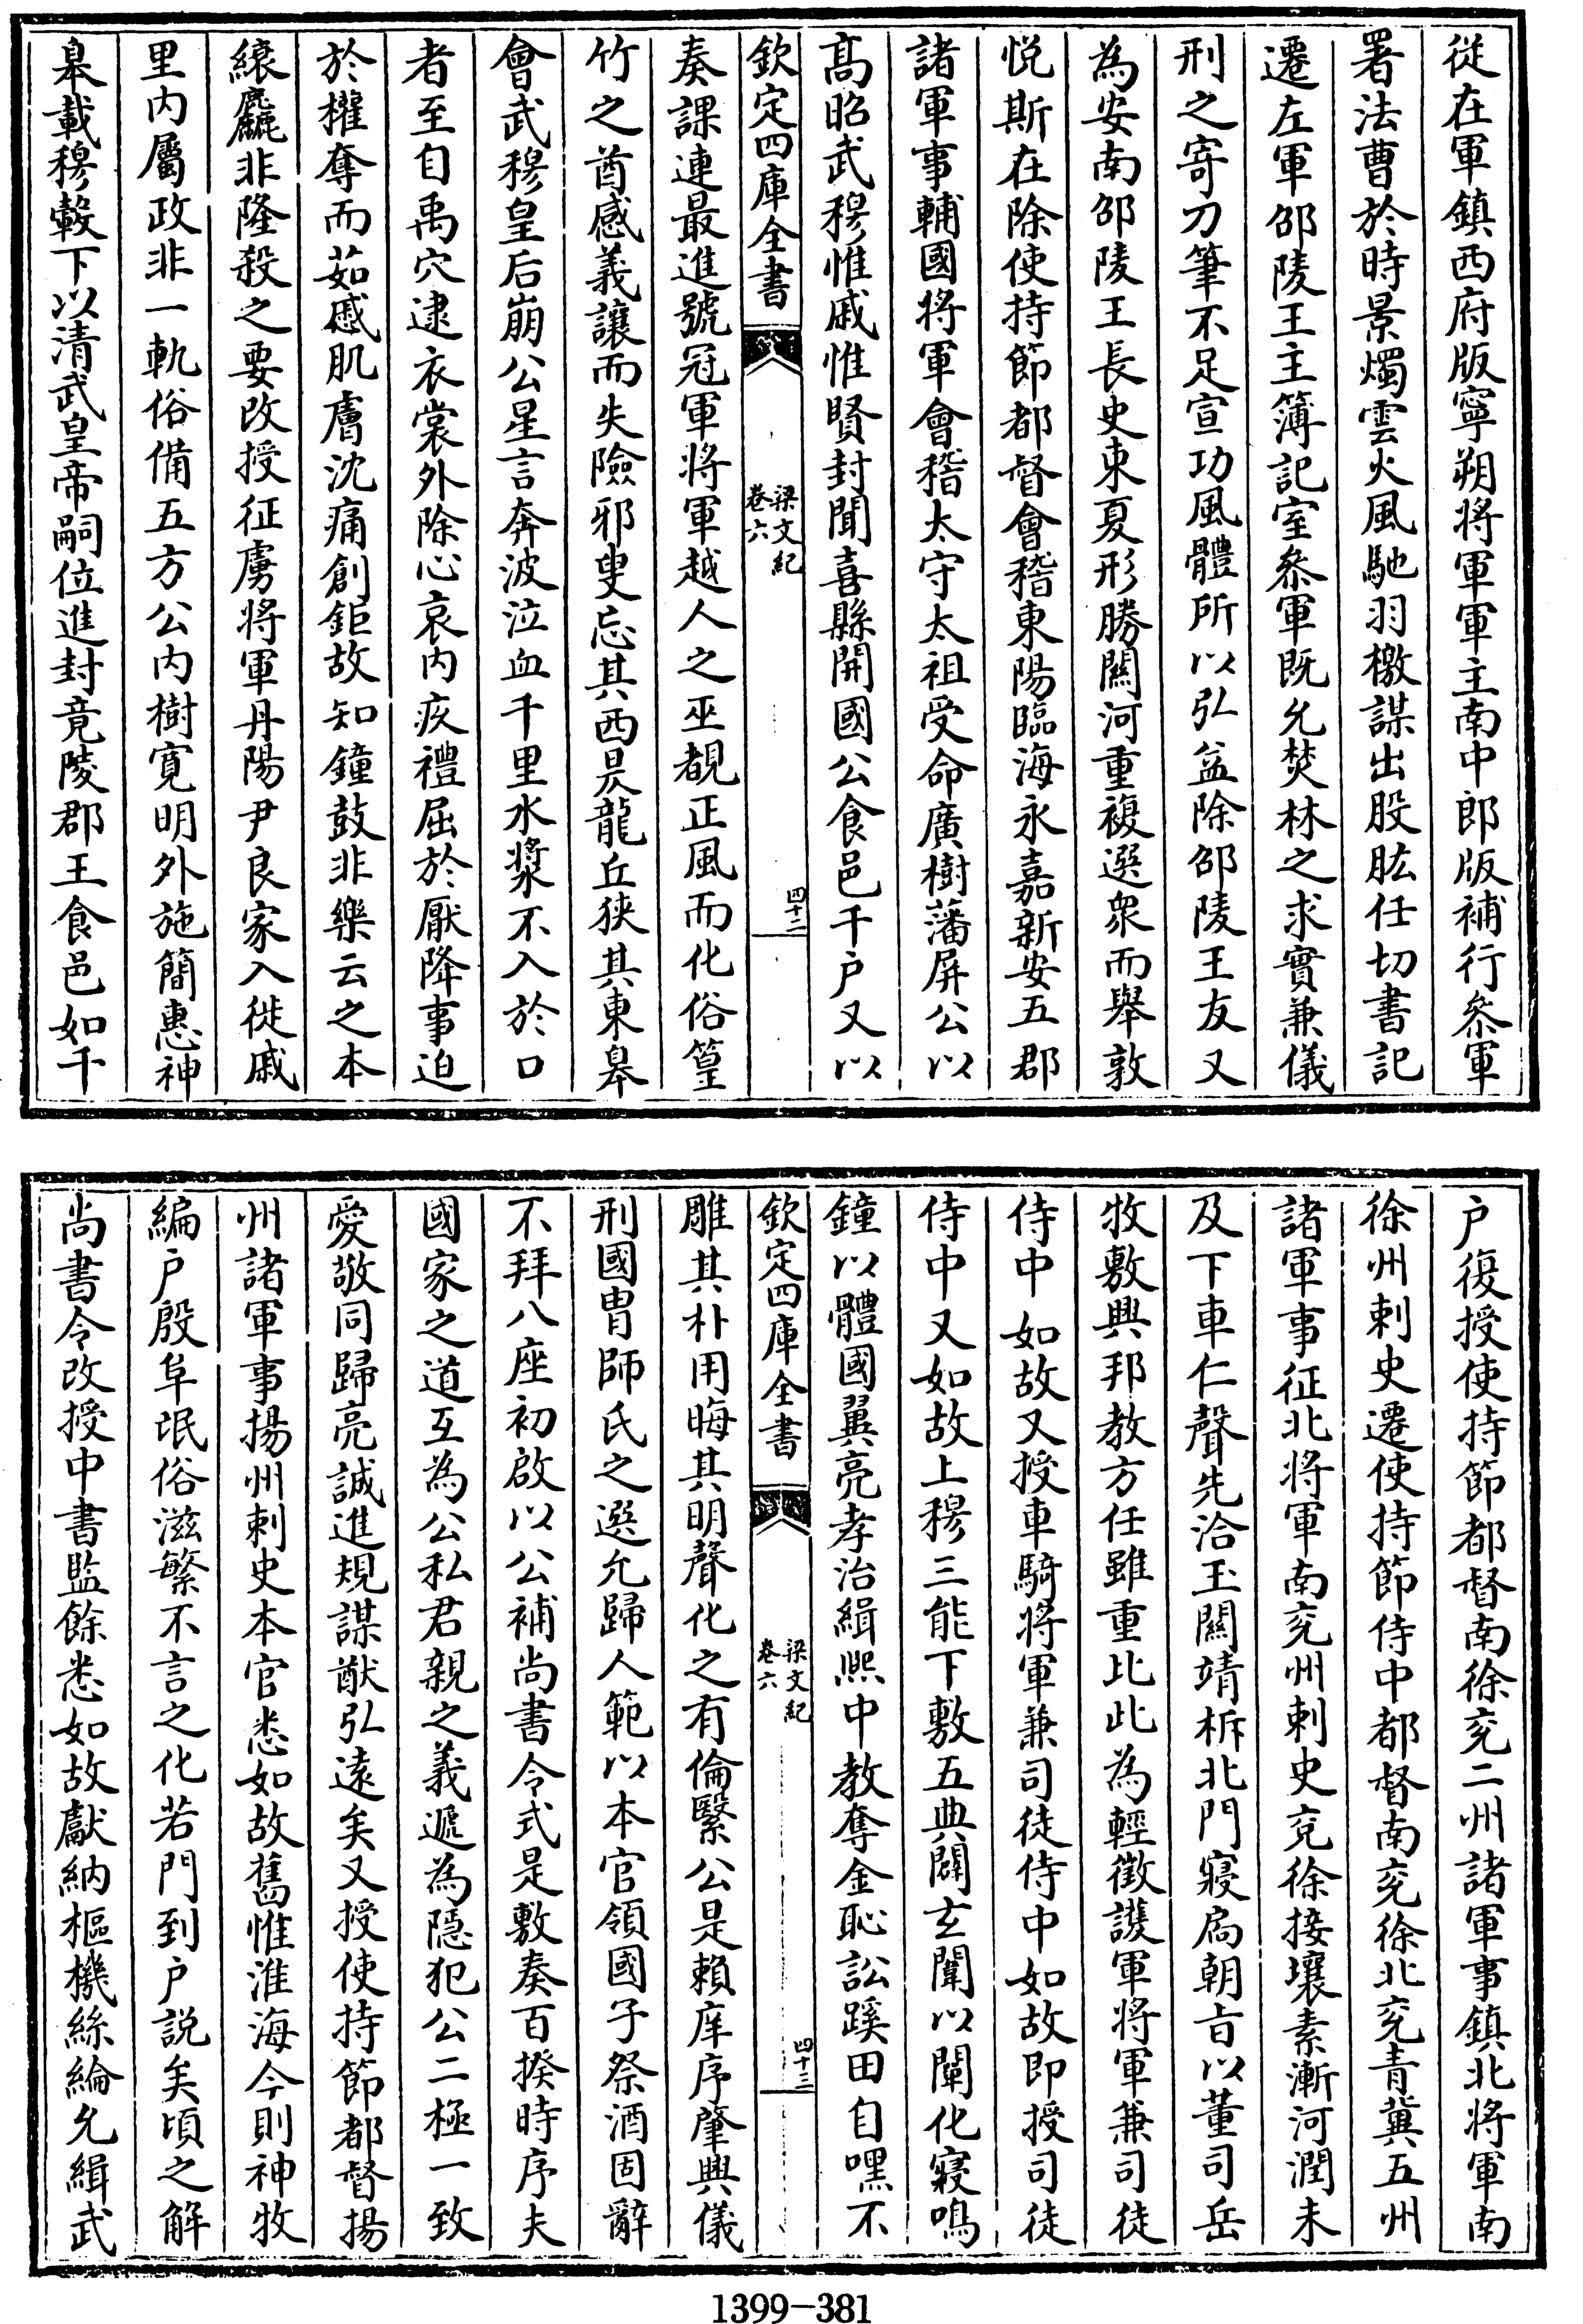 從在軍鎮西府版寧朔将軍軍主南中郎版補行叅軍
署法曹於時景燭雲火風馳羽檄謀出股肱任切書記
遷左軍邵陵王主簿記室叅軍既允焚林之求實兼儀
刑之寄刀筆不足宣功風體所以弘益除邵陵王友又
為安南邵陵王長史東夏形勝闗河重複選衆而舉敦
悦斯在除使持節都督會稽東陽臨海永嘉新安五郡
諸軍事輔國将軍會稽太守太祖受命廣樹藩屏公以
髙昭武穆惟戚惟賢封聞喜縣開國公食邑千户又以
欽定四庫全書
梁文紀
卷六
四十二
奏課連最進號冠軍將軍越人之巫覩正風而化俗篁
竹之酋感義讓而失險邪叟忘其西昃龍丘狹其東皋
會武穆皇后崩公星言奔波泣血千里水漿不入於口
者至自禹穴逮衣裳外除心哀内疚禮屈於厭降事迫
於權奪而茹慼肌膚沈痛創鉅故知鐘鼓非樂云之本
縗麤非隆殺之要改授征虜将軍丹陽尹良家入徙戚
里内屬政非一軌俗備五方公内樹寛明外施簡惠神
皋載穆轂下以清武皇帝嗣位進封竟陵郡王食邑如千
户復授使持節都督南徐兖二州諸軍事鎮北将軍南
徐州刺史遷使持節侍中都督南兖徐北兖青冀五州
諸軍事征北将軍南兖州刺史兖徐接壤素漸河潤未
及下車仁聲先洽玉闗靖柝北門寢扃朝旨以董司岳
牧敷興邦教方任雖重比此為輕徵護軍将軍兼司徒
侍中如故又授車騎将軍兼司徒侍中如故即授司徒
侍中又如故上穆三能下敷五典闢玄闈以闡化寢鳴
鐘以體國翼亮孝治緝熙中教奪金恥訟蹊田自嘿不
欽定四庫全書
梁文紀
卷六
四十三
雕其朴用晦其明聲化之有倫繄公是賴庠序肇興儀
刑國胄師氏之選允歸人範以本官領國子祭酒固辭
不拜八座初啟以公補尚書令式是敷奏百揆時序夫
國家之道互為公私君親之義遞為隱犯公二極一致
愛敬同歸亮誠進規謀猷弘遠矣又授使持節都督揚
州諸軍事揚州刺史本官悉如故舊惟淮海今則神牧
編户殷阜氓俗滋繁不言之化若門到户説矣頃之解
尚書令改授中書監餘悉如故獻納樞機絲綸允緝武
1399-381